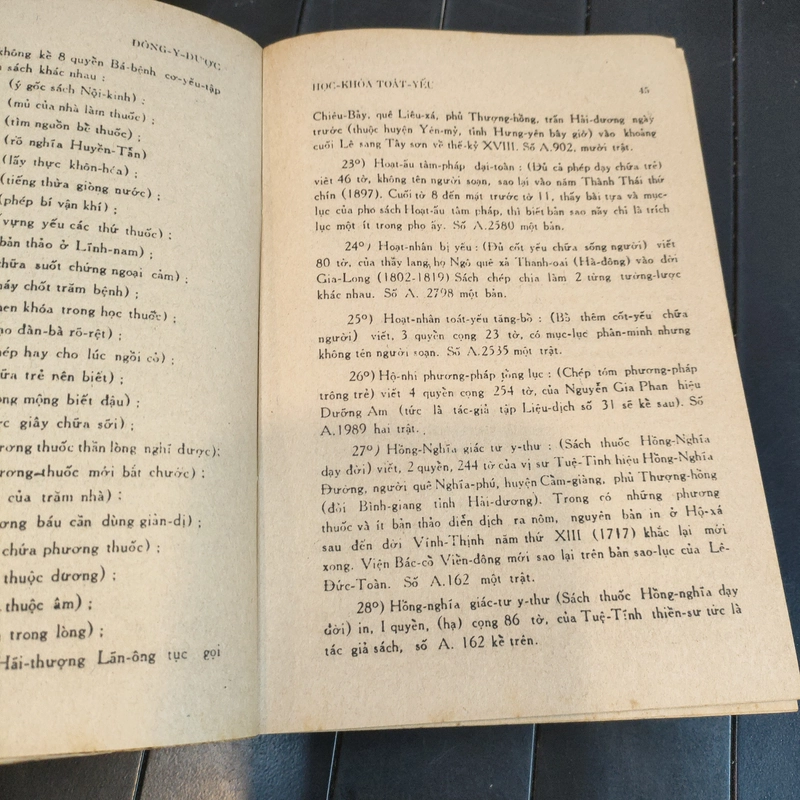 ĐÔNG-Y-DƯỢC
không kể 8 quyển Bá-bệnh cơ-yếu-tập
sách khác nhau :
(ý gốc sách Nội-kinh) ;
(mủ của nhà làm thuốc) ;
(tìm nguồn bể thuốc) ;
(rõ nghĩa Huyền-Tẫn)
(lấy thực khôn-hóa) ;
(tiếng thừa giòng nước) ;
(phép bí vận khí) ;
vựng yếu các thứ thuốc) ;
bản thảo ở Lĩnh-nam) ;
chữa suốt chứng ngoại cảm) ;
máy chốt trăm bệnh) ;
khóa trong học thuốc) ;
đàn-bà rõ-rệt) ;
hay cho lúc ngồi cỏ) ;
trẻ nên biết) ;
mộng biết đậu) ;
giây chữa sởi) ;
thuốc thần lòng nghĩ được);
thuốc mới bắt chước) ;
của trăm nhà) :
báu cần dùng giản-dị) ;
chứa phương thuốc) ;
thuộc dương) ;
thuộc âm) ;
trong lòng) ;
Hải-thượng Lãn-ông tục gọi
HỌC-KHÓA TOÁT-YẾU 45
Chiêu-Bảy, quê Liêu-xá, phủ Thượng-hồng, trấn Hải-dương ngày
trước (thuộc huyện Yên-mỹ, tỉnh Hưng-yên bây giờ) vào khoảng
cuối Lê sang Tây sơn về thế-kỷ XVIII. Số A.902, mười trật.
23º) Hoạt-ấu tâm-pháp đại-toàn : (Đủ cả phép dạy chữa trẻ)
viết 46 tờ, không tên người soạn, sao lại vào năm Thành Thái thứ
chín (1897). Cuối tờ 8 đến mặt trước tờ 11, thấy bài tựa và mục-
lục của pho sách Hoạt-ấu tâm pháp, thì biết bản sao này chỉ là trích
lục một ít trong pho ấy. Số A.2580 một bản.
24º) Hoạt-nhân bị yếu : (Đủ cốt yếu chữa sống người) viết
80 tờ, của thầy lang, họ Ngô quê xã Thanh-oai (Hà-đông) vào đời
Gia-Long (1802-1819) Sách chép chia làm 2 từng tường-lược
khác nhau. Số A. 2798 một bản.
25º) Hoạt-nhân toát-yếu tăng-bổ : (Bổ thêm cốt-yếu chữa
người) viết, 3 quyển cộng 23 tờ, có mục-lục phân-minh nhưng
không tên người soạn. Số A.2535 một trật.
26º) Hộ-nhi phương-pháp tổng lục : (Chép tóm phương-pháp
trông trẻ) viết 4 quyển cộng 254 tờ, của Nguyễn Gia Phan hiệu
Dưỡng Am (tức là tác-giả tập Liệu-dịch số 31 sẽ kể sau). Số
A.1989 hai trật.
27º) Hồng-Nghĩa giác tư y-thư : (Sách thuốc Hồng-Nghĩa
dạy đời) viết, 2 quyển, 244 tờ của vị sư Tuệ-Tĩnh hiệu Hồng-Nghĩa
Đường, người quê Nghĩa-phú, huyện Cẩm-giàng, phủ Thượng-hồng
(đời Bình-giang tỉnh Hải-dương). Trong có những phương
thuốc và ít bản thảo diễn dịch ra nôm, nguyên bản in ở Hộ-xá
sau đến đời Vĩnh-Thịnh năm thứ XIII (1717) khắc lại mới
xong. Viện Bác-cổ Viễn-đông mới sao lại trên bản sao-lục của Lê-
Đức-Toàn. Số A.162 một trật.
28º) Hồng-nghĩa giác-tư y-thư (Sách thuốc Hồng-nghĩa dạy
đời) in, 1 quyển, (hạ) cọng 86 tờ, của Tuệ-Tĩnh thiền-sư tức là
tác giả sách, số A. 162 kể trên.